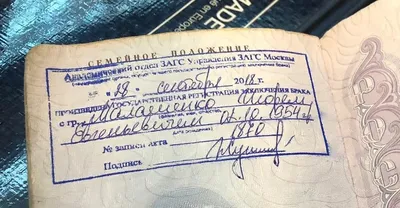 MADE
er en Europe
СЕМЕЙНОЕ ПОЛОЖЕНИЕ
Академический отдел ЗАГС Управления ЗАГС Москвы
сентября 2018 г.
ПРОИЗВЕДЕНА ГОСУДАРСТВЕННАЯ РЕГИСТРАЦИЯ ЗАКЛЮЧЕНИЯ БРАКА
с гр. Малашенко Игорем
Евгеньевичем 02.10.1954 г.
№ записи акта 1870
Подпись